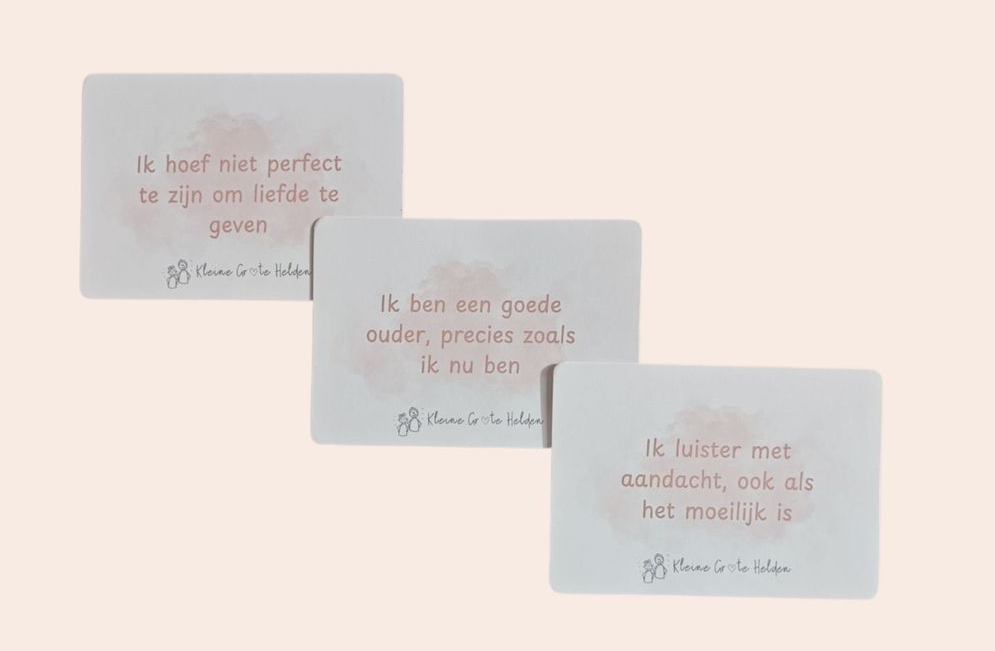 Ik hoef niet perfect
te zijn om liefde te
geven
Kleine Gr♡te Helden
Ik ben een goede
ouder, precies zoals
ik nu ben
Kleine Gr♡te Helden
Ik luister met
aandacht, ook als
het moeilijk is
Kleine Gr♡te Helden